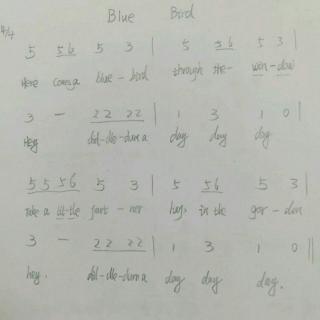 Blue Bird
4/4
5 56 5 3 | 5 56 5 3 |
Here comes a blue - bird through the - win - dow
3 - 22 22 | 1 3 1 0 |
Hey did-dle-dum a day day day
5 5 56 5 3 | 5 56 5 3 |
Take a lit-tle part - ner hop in the gar - den
3 - 22 22 | 1 3 1 0 ||
hey. did-dle-dum a day day day.